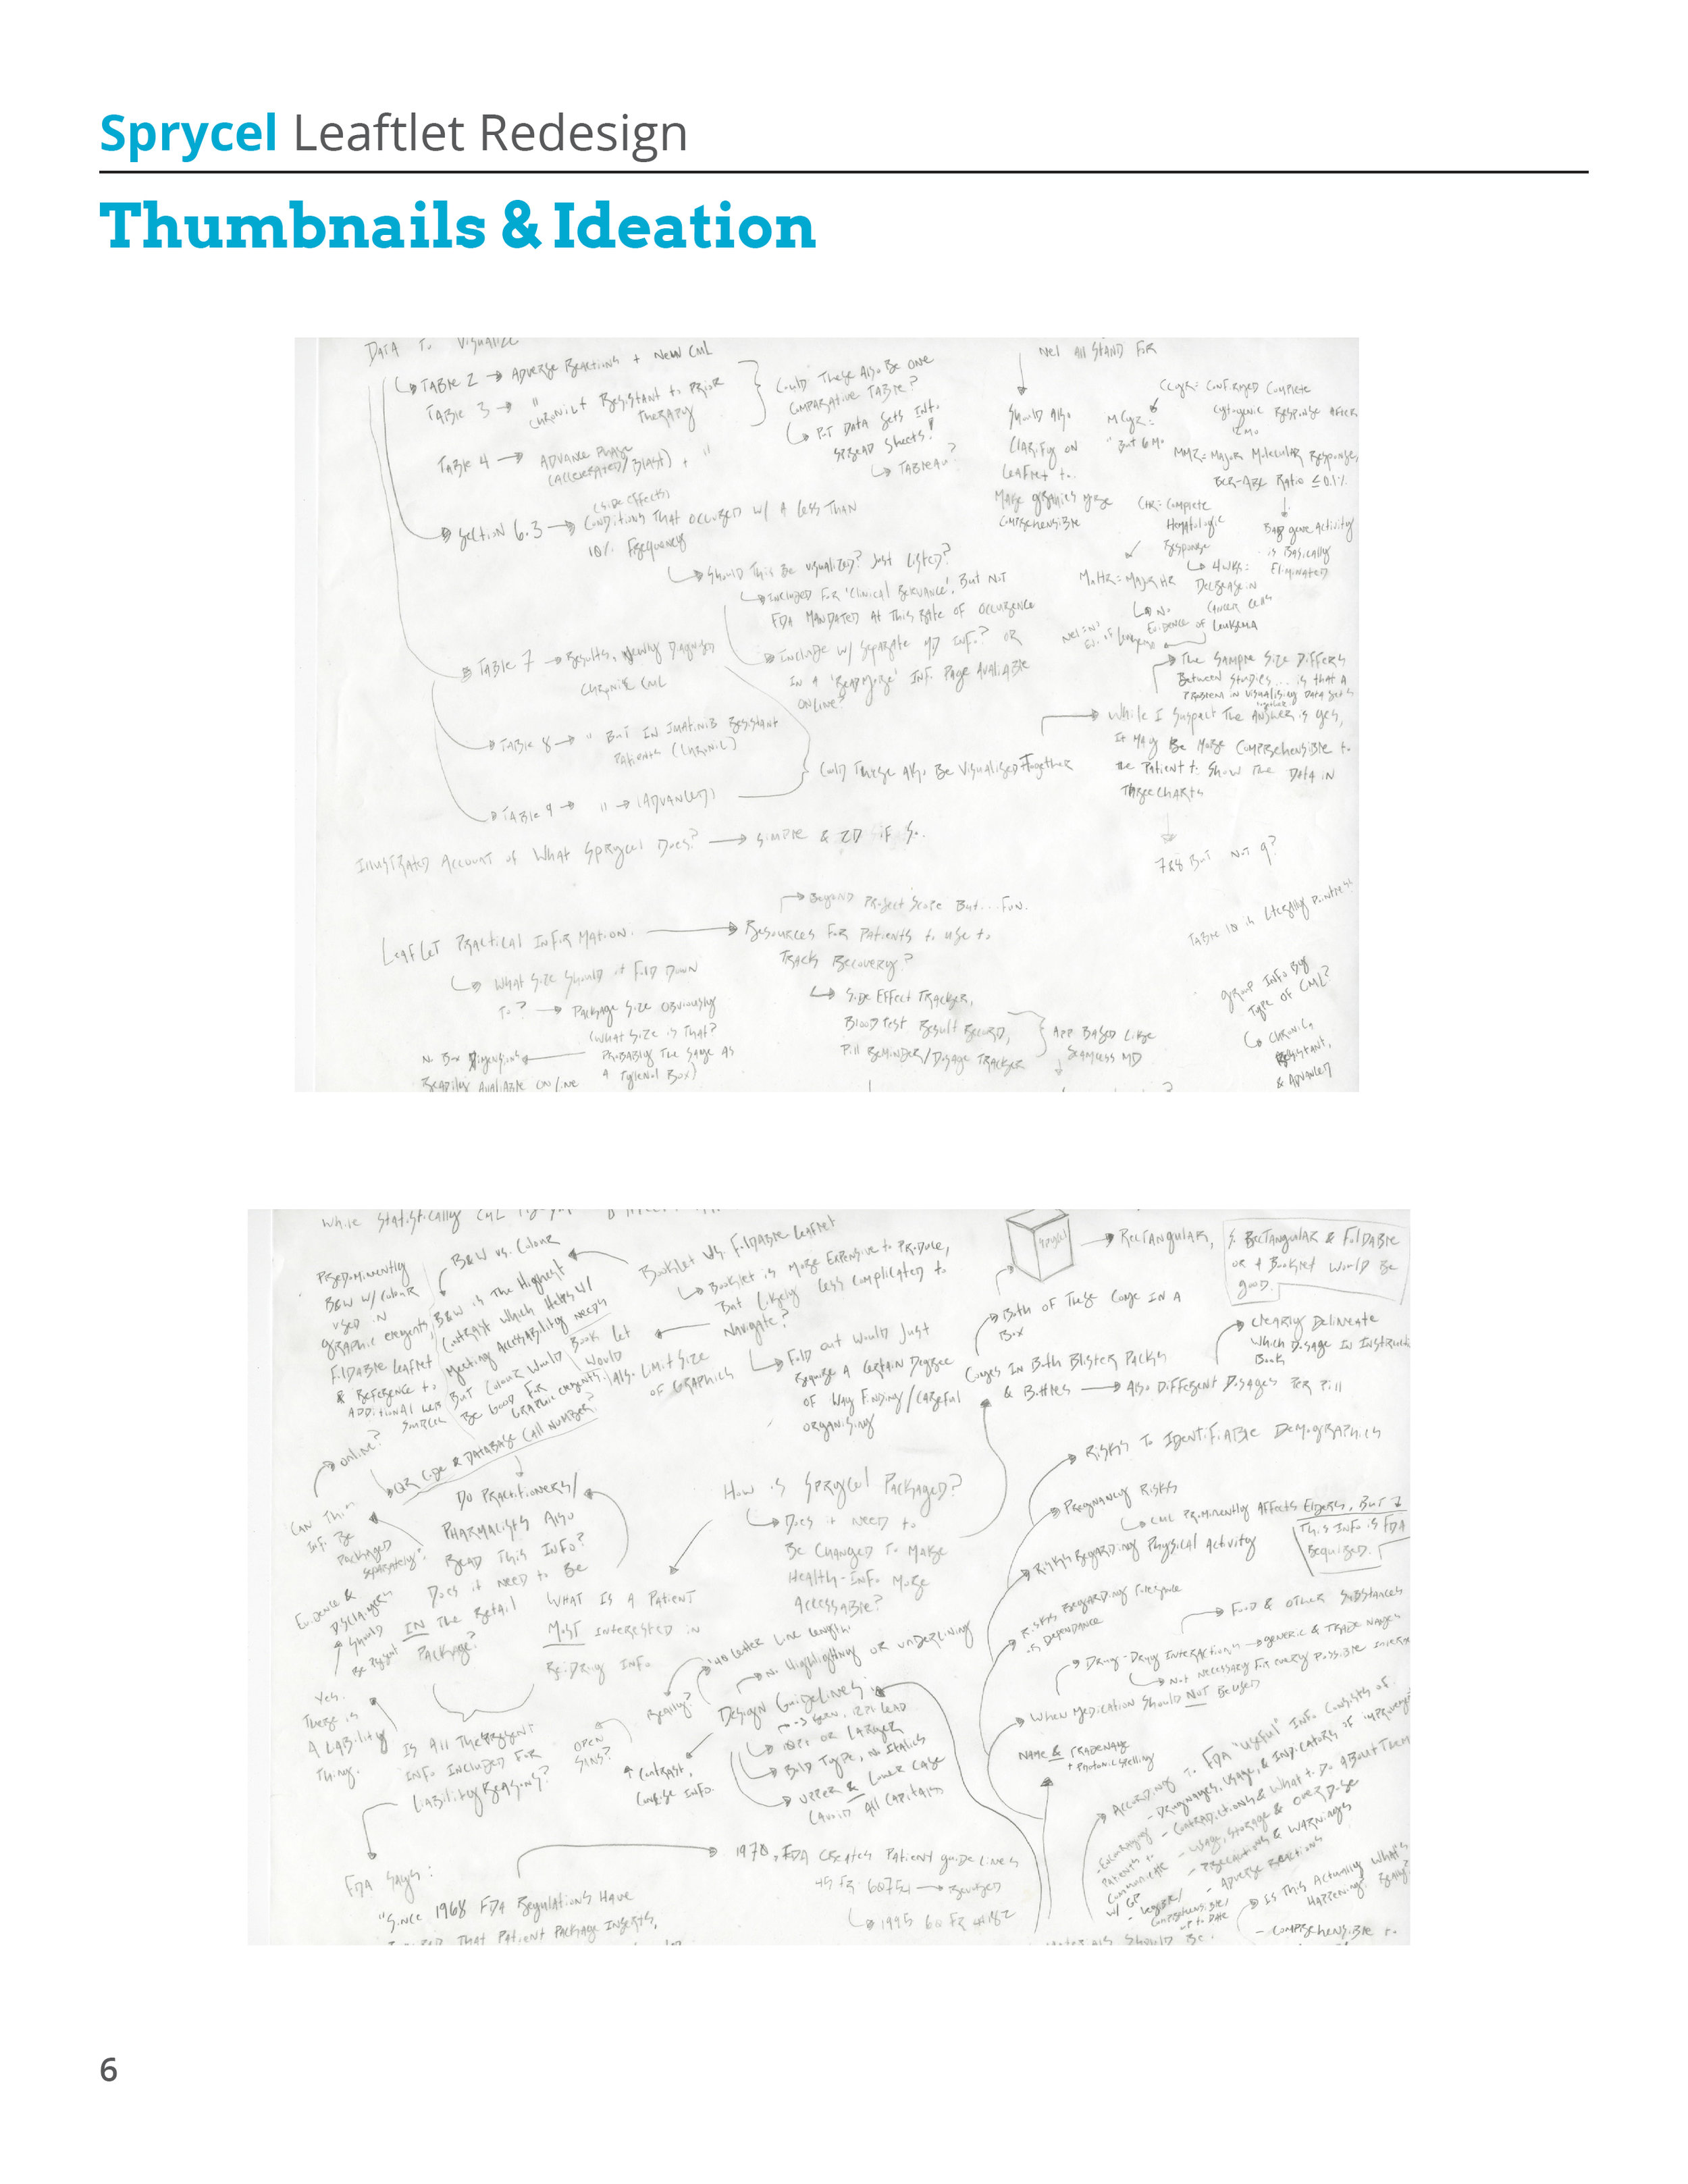 Sprycel Leaftlet Redesign
Thumbnails & Ideation
DATA To VISUALIZE
TABLE 2 → ADVERSE REACTIONS + NEW CML
TABLE 3 → " CHRONIC + RESISTANT to PRIOR
THERAPY
COULD THESE ALSO BE ONE
COMPARATIVE TABLE?
PUT DATA SETS INTO
SPREAD SHEETS!
TABLEAU?
TABLE 4 → ADVANCE PHASE
(ACCELERATED/BLAST) + "
(SIDE EFFECTS)
SECTION 6.3 → CONDITIONS THAT OCCURED W/ A LESS THAN
10% FREQUENCY
SHOULD THIS BE VISUALIZED? JUST LISTED?
INCLUDED FOR 'CLINICAL RELEVANCE', BUT NOT
FDA MANDATED AT THIS RATE OF OCCURENCE
INCLUDE W/ SEPARATE MD INFO? OR
IN A 'READ MORE' INFO PAGE AVALIABLE
ONLINE?
TABLE 7 → RESULTS, NEWLY DIAGNOSED
CHRONIC CML
TABLE 8 → " BUT IN IMATINIB RESISTANT
PATIENTS (CHRONIC)
TABLE 9 → " → (ADVANCED)
COULD THESE ALSO BE VISUALISED TOGETHER
NEL ALL STAND FOR
SHOULD ALSO
CLARIFY ON
LEAFLET to
MAKE GRAPHICS MORE
COMPREHENSIBLE
CCyR = CONFIRMED COMPLETE
CYTOGENIC RESPONSE AFTER
12 MO
MCyR =
" BUT 6 MO
MMR = MAJOR MOLECULAR RESPONSE,
BCR-ABL RATIO ≤ 0.1%
BAD GENE ACTIVITY
is BASICALLY
ELIMINATED
CHR = COMPLETE
HEMATOLOGIC
RESPONSE
4 WKS:
DECREASE IN
CANCER CELLS
MaHR = MAJOR HR
NO
EVIDENCE OF LEUKEMIA
THE SAMPLE SIZE DIFFERS
BETWEEN STUDIES... is THAT A
PROBLEM IN VISUALISING DATA SETS
together?
WHILE I SUSPECT THE ANSWER IS YES,
IT MAY BE MORE COMPREHENSIBLE to
THE PATIENT to SHOW THE DATA IN
THREE CHARTS
7&8 BUT NOT 9?
ILLUSTRATED ACCOUNT OF WHAT SPRYCEL DOES? → SIMPLE & 2D IF SO.
TABLE 10 is LITERALLY POINTLESS
GROUP INFO BY
TYPE OF CML?
CHRONIC,
RESISTANT,
& ADVANCED
LEAFLET PRACTICAL INFORMATION. → RESOURCES FOR PATIENTS to USE to
TRACK RECOVERY?
BEYOND PROJECT SCOPE BUT... FUN.
SIDE EFFECT TRACKER,
BLOOD TEST RESULT RECORD,
PILL REMINDER/DOSAGE TRACKER
APP BASED LIKE
SEAMLESS MD
WHAT SIZE SHOULD it FOLD DOWN
TO? → PACKAGE SIZE OBVIOUSLY
(WHAT SIZE is THAT?
PROBABLY THE SAME AS
A TYLENOL BOX)
NO BOX DIMENSIONS
READILY AVALIABLE ONLINE
WHILE STATISTICALLY CML
BOOKLET VS. FOLDABLE LEAFLET
BOOKLET is MORE EXPENSIVE to PRODUCE,
BUT LIKELY LESS COMPLICATED to
NAVIGATE?
FOLD OUT WOULD JUST
REQUIRE A CERTAIN DEGREE
OF WAY FINDING/CAREFUL
ORGANISING
BOOKLET
WOULD
ALSO LIMIT SIZE
OF GRAPHICS
B&W VS. COLOUR
B&W is THE HIGHEST
CONTRAST WHICH HELPS W/
MEETING ACCESSABILITY NEEDS
BUT COLOUR WOULD
BE GOOD FOR
GRAPHIC ELEMENTS.
PREDOMINENTLY
B&W W/ COLOUR
USED IN
GRAPHIC ELEMENTS,
FOLDABLE LEAFLET
& REFERENCE to
ADDITIONAL WEB
SOURCES
QR CODE & DATABASE CALL NUMBER?
ONLINE?
CAN THIS
INFO BE
PACKAGED
SEPARATELY?
DO PRACTITIONERS/
PHARMACISTS ALSO
READ THIS INFO?
DOES it NEED to BE
IN THE RETAIL
PACKAGE?
EVIDENCE &
DISCLAIMERS
SHOULD
BE PRESENT
YES.
THERE is
A LIABILITY
THING.
IS ALL THE PRESENT
INFO INCLUDED FOR
LIABILITY REASONS?
FDA SAYS:
"SINCE 1968 FDA REGULATIONS HAVE
THAT PATIENT PACKAGE INSERTS,
1970, FDA CREATES PATIENT GUIDELINES
REVISED
1995 60 FR 44182
HOW is SPRYCEL PACKAGED?
DOES it NEED to
BE CHANGED TO MAKE
HEALTH-INFO MORE
ACCESSABLE?
WHAT IS A PATIENT
MOST INTERESTED IN
RE: DRUG INFO
DESIGN GUIDELINES
NO HIGHLIGHTING OR UNDERLINING
40 LETTER LINE LENGTH.
REALLY?
10PT OR LARGER
BOLD TYPE, NO ITALICS
UPPER & LOWER CASE
(AVOID ALL CAPITALS
OPEN
SANS?
↑ CONTRAST,
CONCISE INFO.
SPRYCEL
RECTANGULAR,
SO RECTANGULAR & FOLDABLE
OR A BOOKLET WOULD BE
GOOD.
BOTH OF THESE COME IN A
BOX
COMES IN BOTH BLISTER PACKS
& BOTTLES → ALSO DIFFERENT DOSAGES PER PILL
CLEARLY DELINEATE
WHICH DOSAGE IN INSTRUCTION
BOOK
RISKS TO IDENTIFIABLE DEMOGRAPHICS
PREGNANCY RISKS
CML PROMINENTLY AFFECTS ELDERS, BUT
THIS INFO is FDA
REQUIRED.
RISKS REGARDING PHYSICAL ACTIVITY
RISKS REGARDING TOLERANCE
OR DEPENDANCE
FOOD & OTHER SUBSTANCES
DRUG-DRUG INTERACTIONS → GENERIC & TRADE NAMES
NOT NECESSARY FOR EVERY POSSIBLE
WHEN MEDICATION SHOULD NOT BE USED
NAME & TRADENAME
+ PHOTONIC SPELLING
ACCORDING TO FDA "USEFUL" INFO CONSISTS OF:
- DRUG NAMES, USAGE, & INDICATORS OF IMPROVEMENT
- CONTRADICTIONS & WHAT TO DO ABOUT THEM
- USAGE, STORAGE & OVERDOSE
- PRECAUTIONS & WARNINGS
- ADVERSE REACTIONS
- ENCOURAGING
PATIENTS to
COMMUNICATE
W/ GP
- LEGIBLE/
COMPREHENSIBLE/
UP to DATE
IS THIS ACTUALLY WHAT'S
HAPPENING? REALLY?
- COMPREHENSIBLE to
MATERIALS SHOULD BE:
6